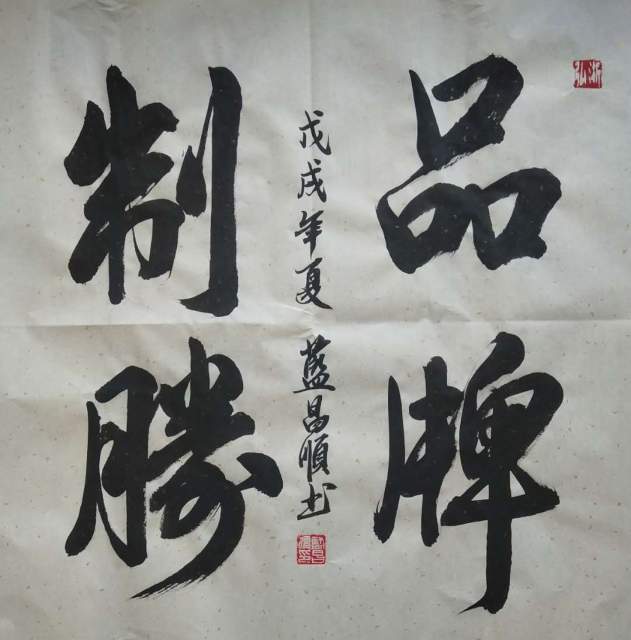 品牌
制勝
戊戌年夏 藍昌順书